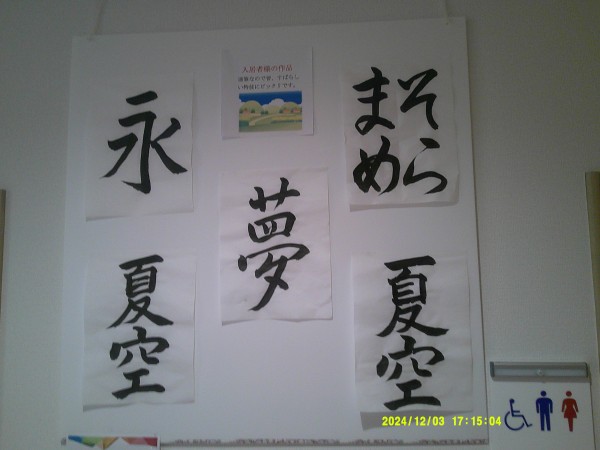 入居者様の作品
永
そら
まめ
夢
夏空
夏空
2024/12/03 17:15:04